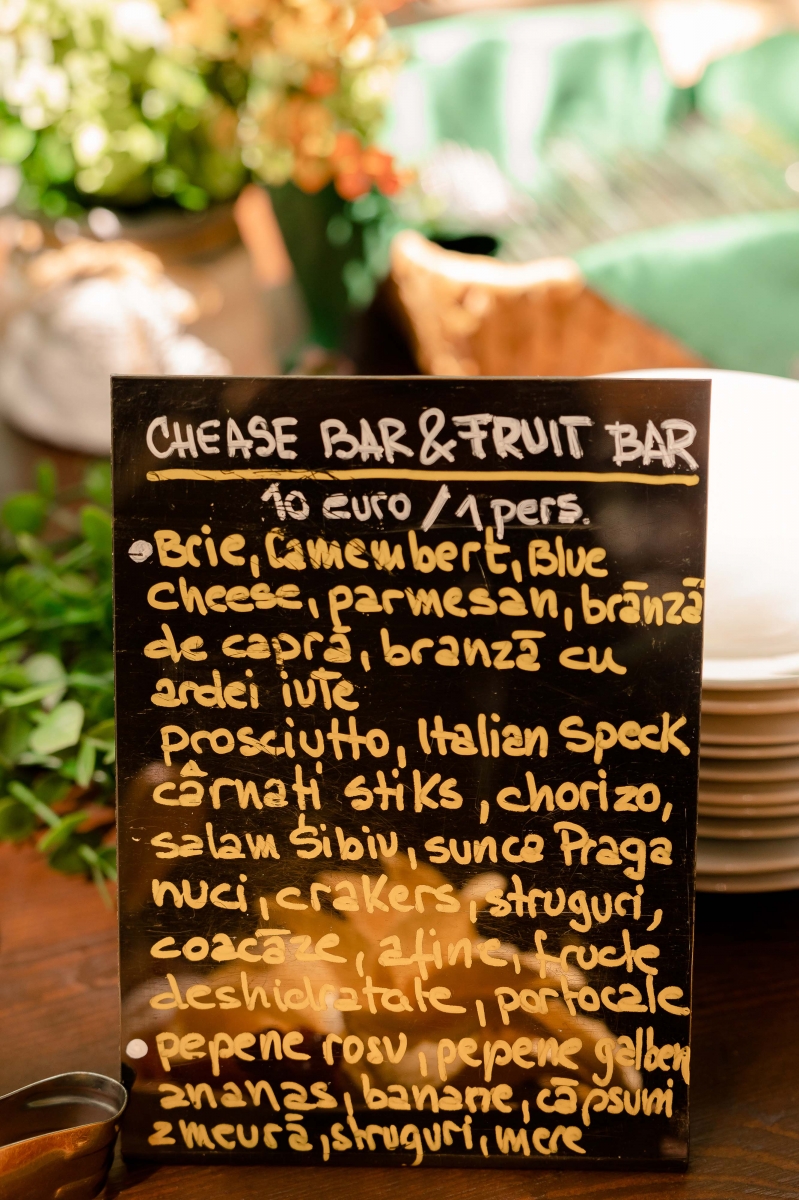 CHEASE BAR & FRUIT BAR
10 euro / 1 pers.
Brie, Camembert, Blue
cheese, parmesan, brānză
de capră, branză cu
ardei iute
prosciutto, Italian Speck
cârnați stiks, chorizo,
salam Sibiu, sunca Praga
nuci, crakers, struguri,
coacāze, afine, fructe
deshidratate, portocale
pepene rosu, pepene galben
ananas, banane, cāpsuni
zmeurā, struguri, mere